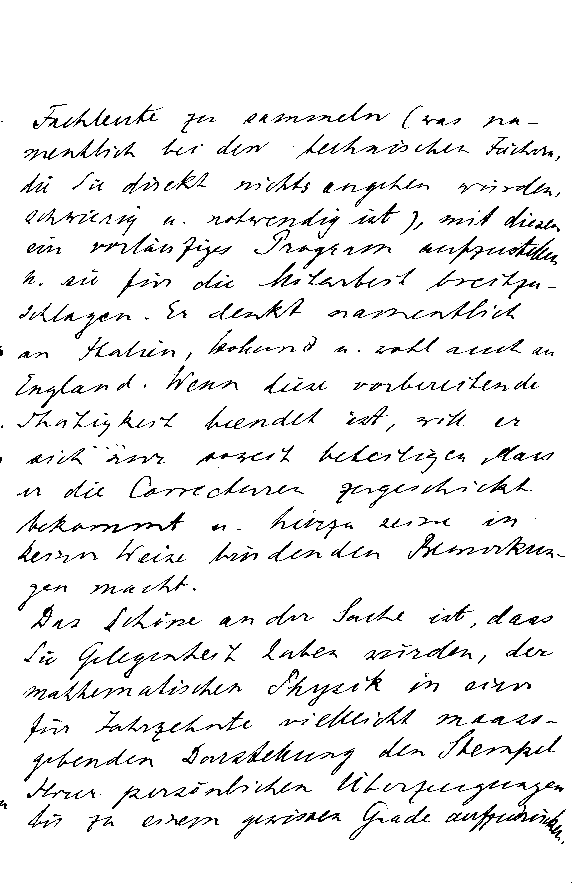 Fachleute zu sammeln (was na-
mentlich bei den technischen Fächern,
die Sie direkt nichts angehen würden,
schwierig u. notwendig ist), mit diesen
ein vorläufiges Program aufzustellen
u. sie für die Mitarbeit breitzu-
schlagen. Er denkt namentlich
an Italien, u. wohl auch an
England. Wenn diese vorbereitende
Thätigkeit beendet ist, will er
sich nur soweit beteiligen, dass
er die Correcturen zugeschickt
bekommt u. hierzu seine in
keiner Weise bindenden Bemerkun-
gen macht.
Das Schöne an der Sache ist, dass
Sie Gelegenheit haben würden, der
mathematischen Physik in einer
für Jahrzehnte vielleicht maass-
gebenden Darstellung den Stempel
Ihrer persönlichen Überzeugungen
bis zu einem gewissen Grade aufzudrücken.